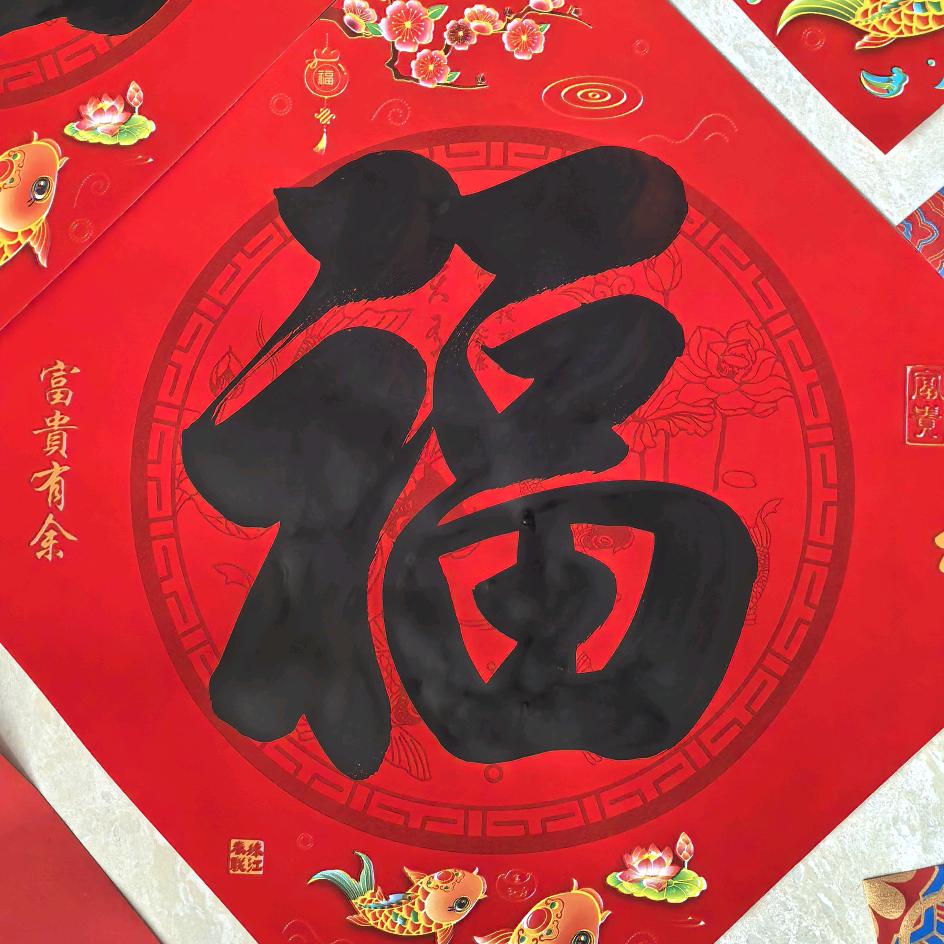 福
福
富貴有余
富貴